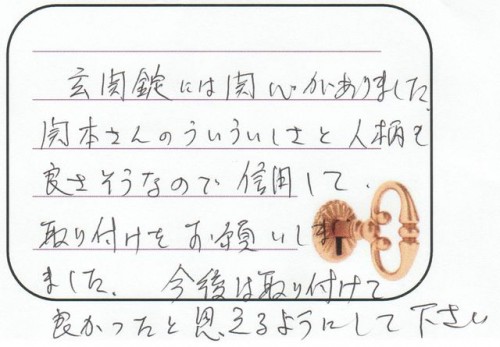 玄関錠には関心がありました。
関本さんのういういしさと人柄も
良さそうなので信用して、
取り付けをお願いしま
ました。 今後は取り付けて
良かったと思えるようにして下さい